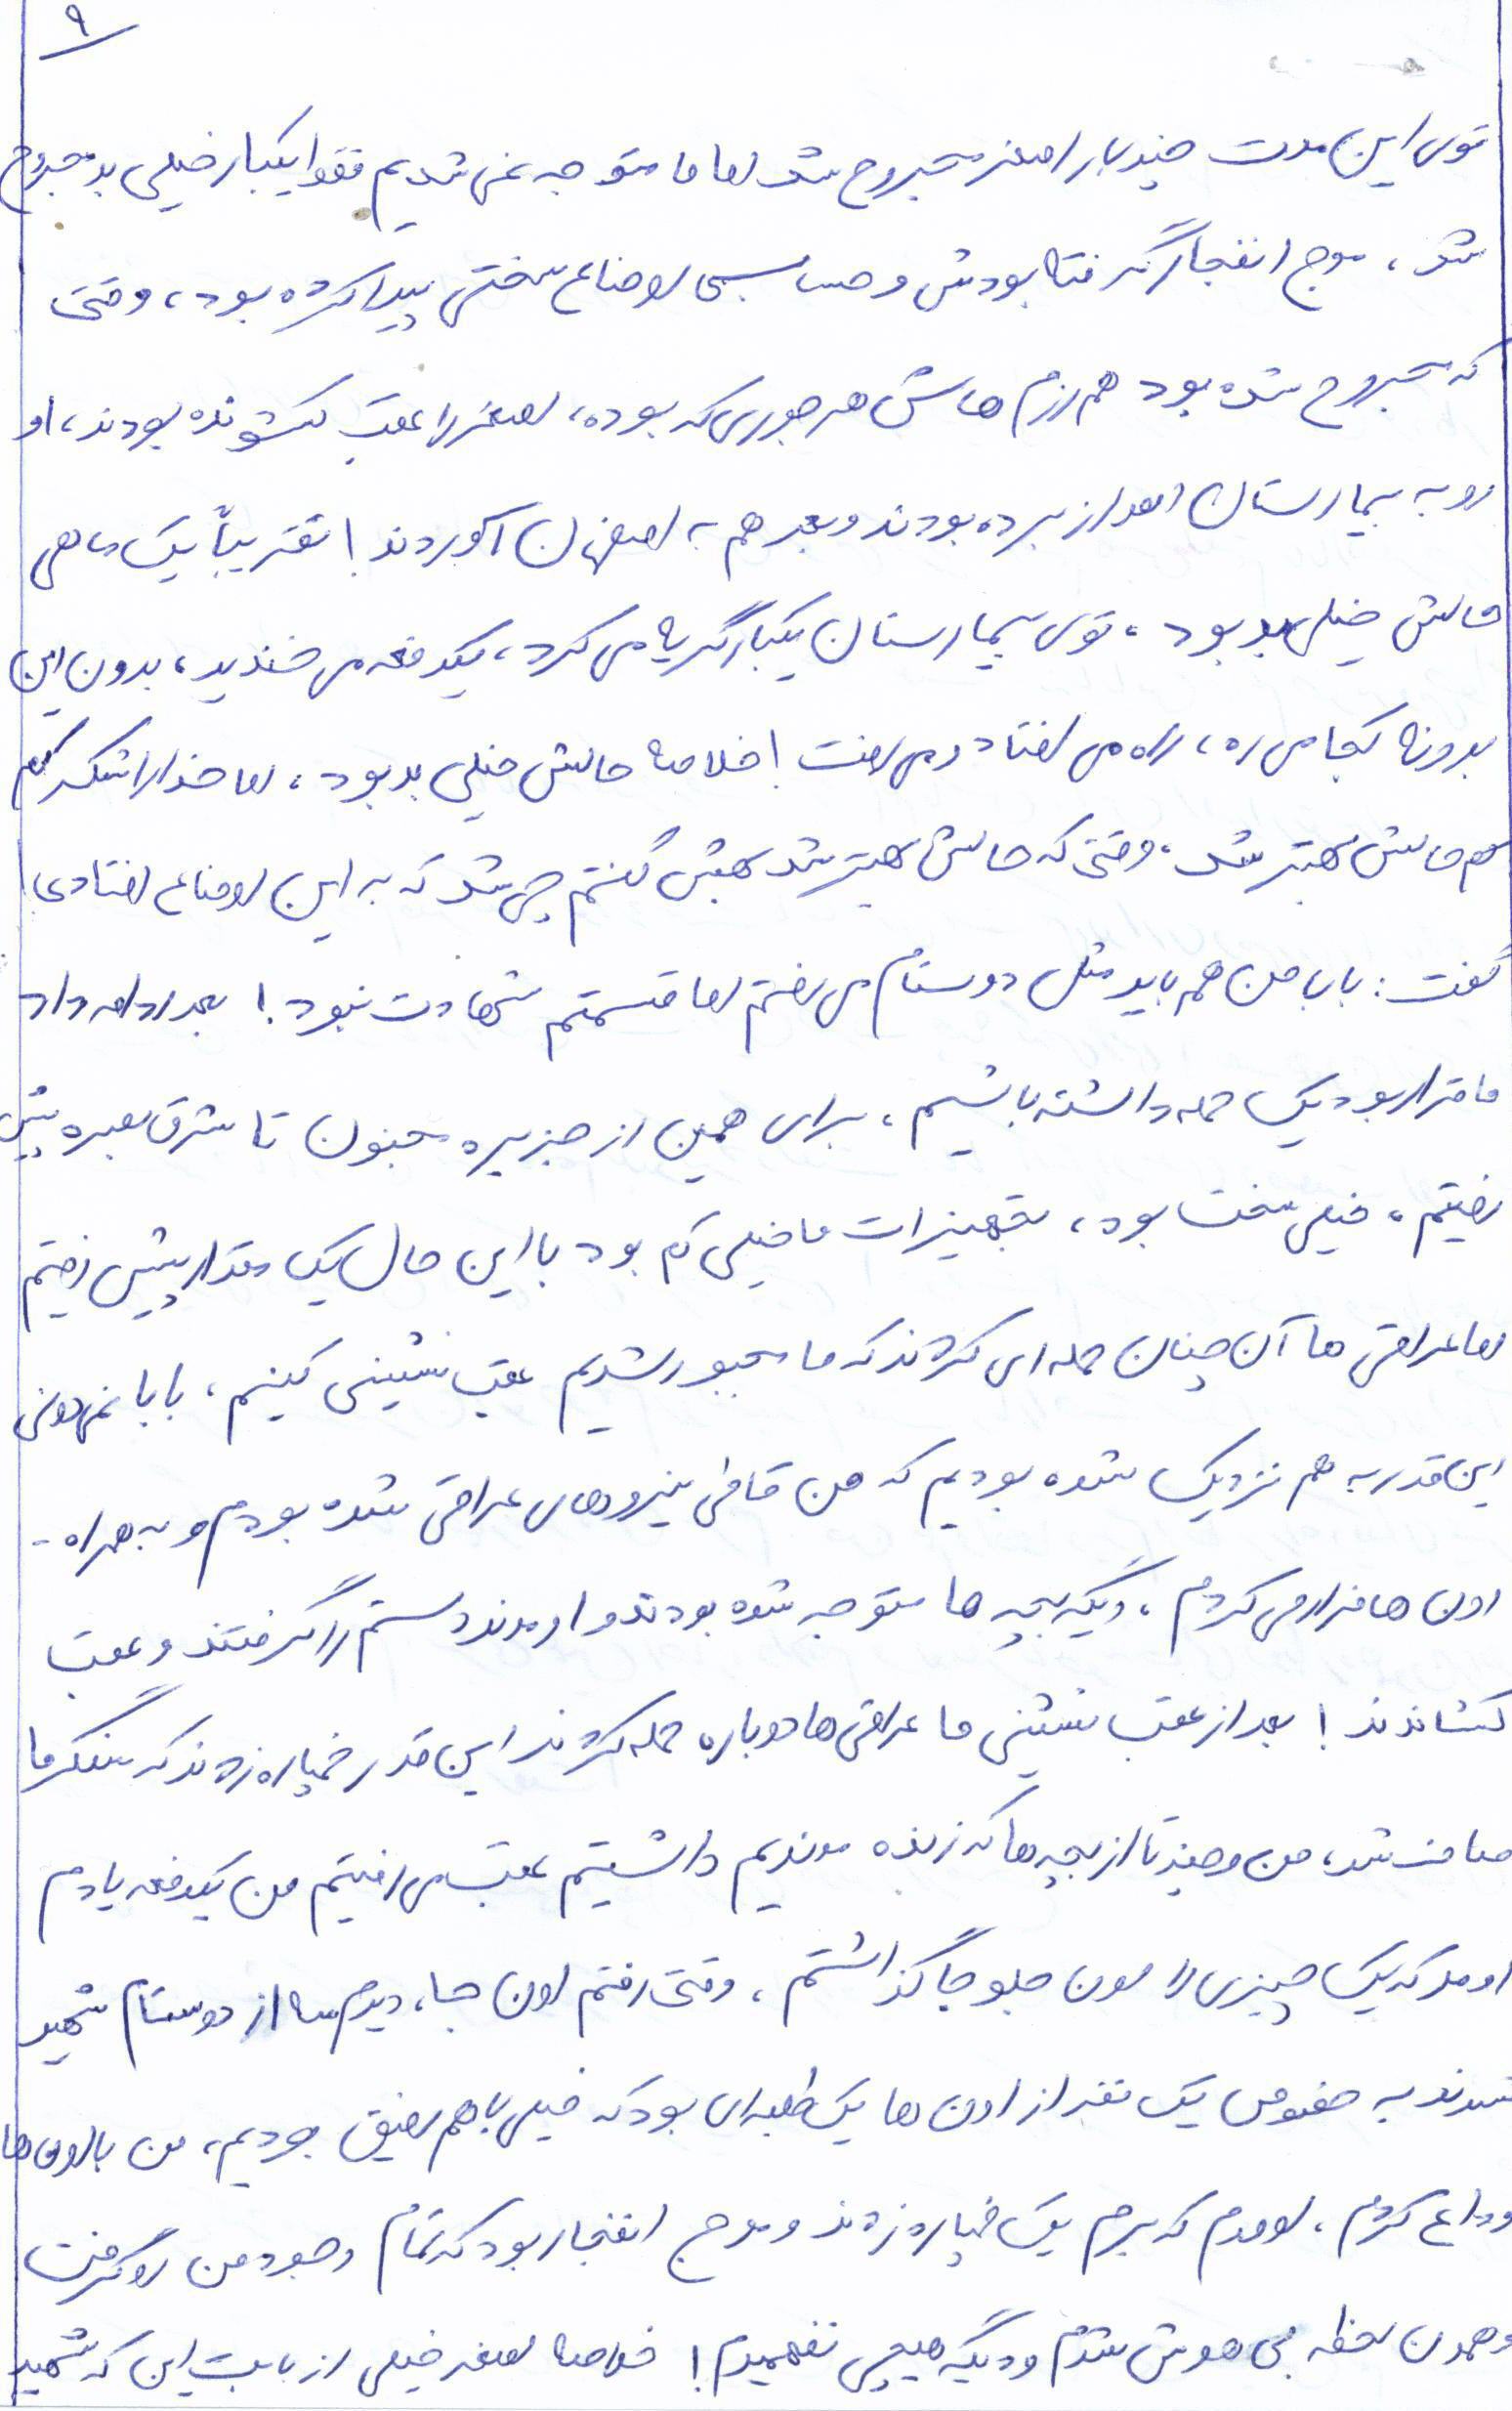 ۹
توی این مدت چند بار اصغر مجروح شد اما ما متوجه نمی شدیم فقط یکبار خیلی بد مجروح
شد، موج انفجار گرفتا بودش و حسابی اوضاع سختی پیدا کرده بود، وقتی
که مجروح شده بود هم رزم هاش هر جوری که بوده، اصغر را عقب کشونده بودند، او
رو به بیمارستان اهواز برده بودند و بعد هم به اصفهان آوردند! تقریباً یک ماهی
حالش خیلی بد بود، توی بیمارستان یکبار گریه می کرد، یکدفعه می خندید، بدون این
بدونه کجا می ره، راه می افتاد و می رفت! خلاصه حالش خیلی بد بود، اما خدا را شکر کم
کم حالش بهتر شد، وقتی که حالش بهتر شد بهش گفتم چی شد که به این اوضاع افتادی!
گفت: بابا من هم باید مثل دوستام می رفتم اما قسمتم شهادت نبود! بعد ادامه داد
ما قرار بود یک حمله داشته باشیم، برای همین از جزیره مجنون تا شرق بصره پیش
رفتیم، خیلی سخت بود، تجهیزات ما خیلی کم بود با این حال یک مقدار پیش رفتیم
اما عراقی ها آن چنان حمله ای کردند که ما مجبور شدیم عقب نشینی کنیم، بابا نمی دونی
این قدر به هم نزدیک شده بودیم که من قاطی نیروهای عراقی شده بودم و به همراه -
اون ها فرار می کردم، دیگه بچه ها متوجه شده بودند و اومدند دستم را گرفتند و عقب
کشاندند! بعد از عقب نشینی ما عراقی ها دوباره حمله کردند این قدر خمپاره زدند که سنگر ما
صاف شد، من و چند تا از بچه ها که زنده موندیم داشتیم عقب می رفتیم من یکدفعه یادم
اومد که یک چیزی را اون جلو جا گذاشتم، وقتی رفتم اون جا، دیدم از دوستام شهید
شدند به خصوص یک نفر از اون ها یک طلبه ای بود که خیلی با هم رفیق بودیم، من با اون ها
وداع کردم، اومدم که برم یک خمپاره زدند و موج انفجار بود که تمام وجود من رو گرفت
و همون لحظه بی هوش شدم و دیگه هیچی نفهمیدم! خلاصه اصغر خیلی از بابت این که شهید